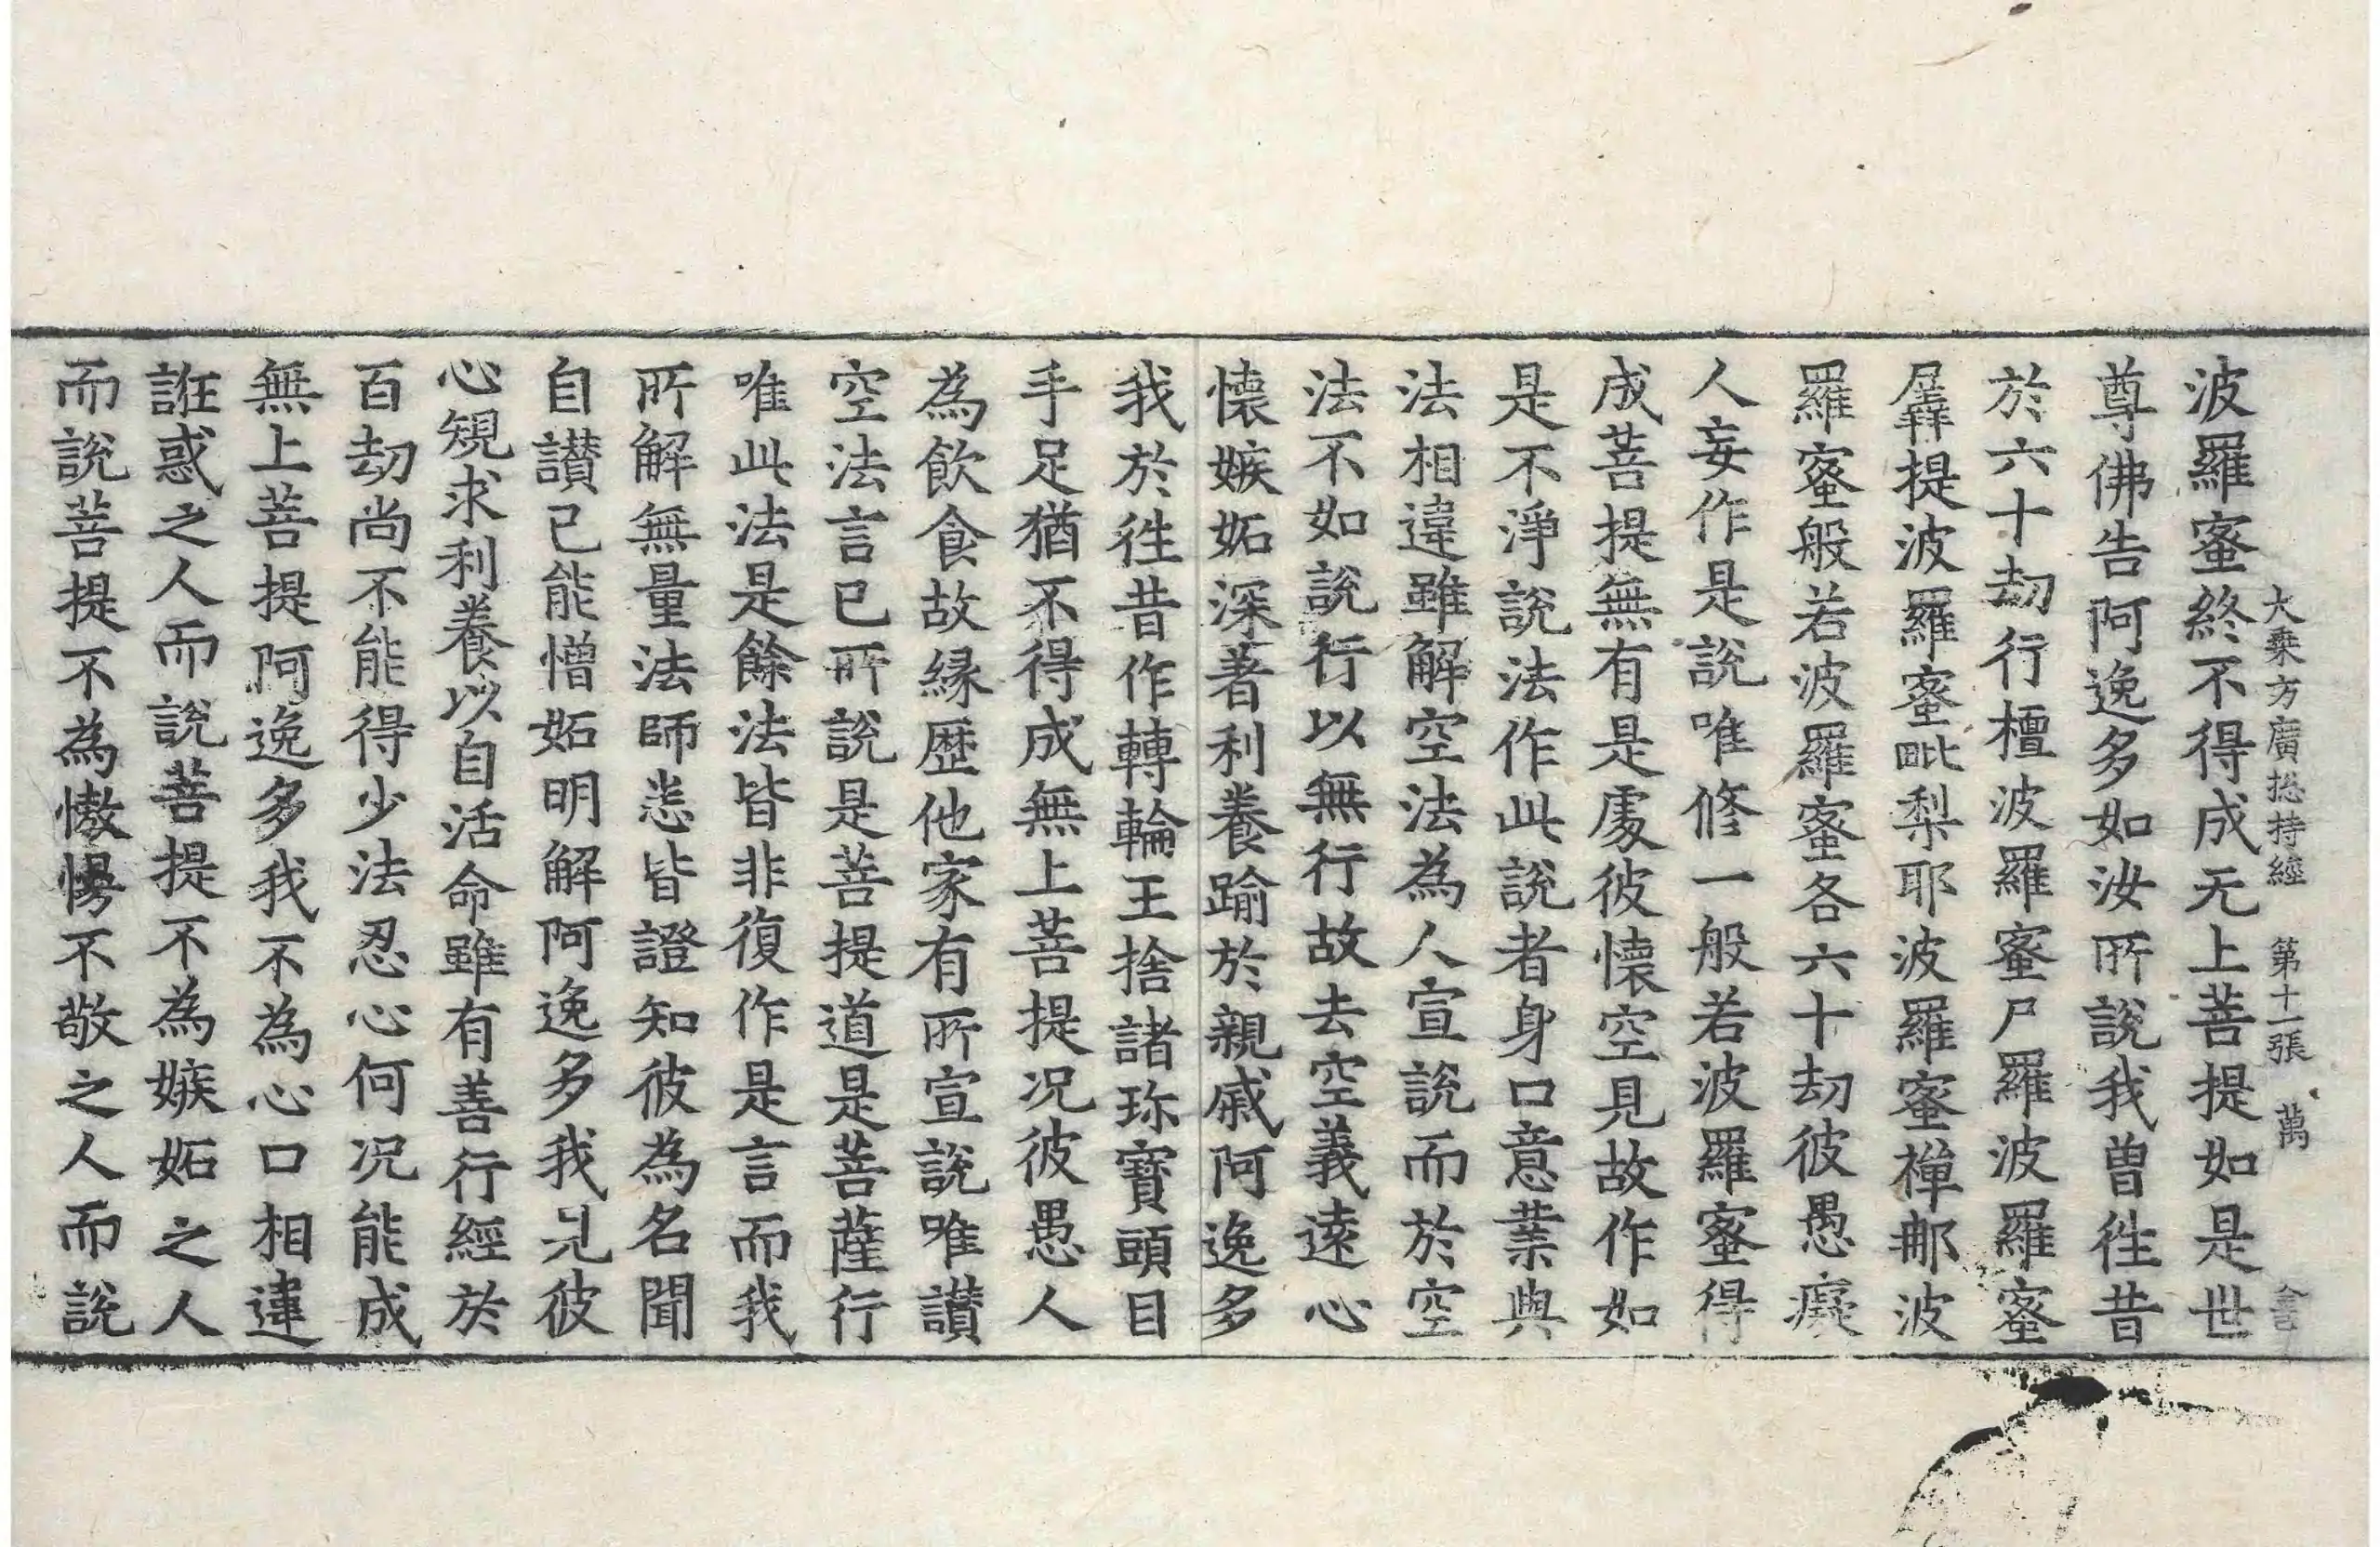 大乘方廣捴持經 第十一張 萬
波羅蜜終不得成无上菩提如是世
尊佛告阿逸多如汝所說我曾徃昔
於六十劫行檀波羅蜜尸羅波羅蜜
羼提波羅蜜毗梨耶波羅蜜禪那波
羅蜜般若波羅蜜各六十劫彼愚癡
人妄作是說唯修一般若波羅蜜得
成菩提無有是處彼懷空見故作如
是不淨說法作此說者身口意業與
法相違雖解空法為人宣說而於空
法不如說行以無行故去空義遠心
懷嫉妬深著利養踰於親戚阿逸多
我於徃昔作轉輪王捨諸珎寶頭目
手足猶不得成無上菩提况彼愚人
為飲食故緣歴他家有所宣說唯讃
空法言已所說是菩提道是菩薩行
唯此法是餘法皆非復作是言而我
所解無量法師悉皆證知彼為名聞
自讃己能憎妬明解阿逸多我見彼
心規求利養以自活命雖有善行經於
百劫尚不能得少法忍心何况能成
無上菩提阿逸多我不為心口相違
誑惑之人而說菩提不為嫉妬之人
而說菩提不為憿慢不敬之人而說